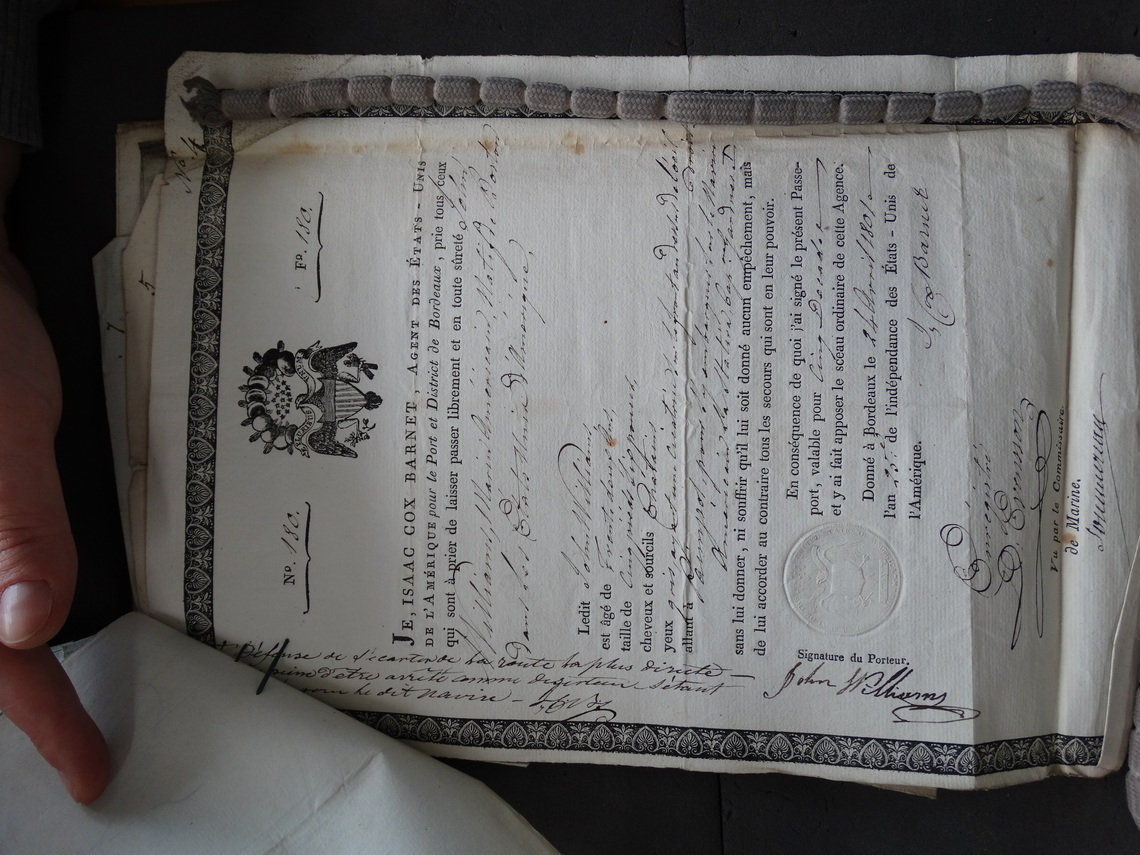 7
5
No 4
No. 180.
E PLURIBUS UNUM
Fo. 180.
JE, ISAAC COX BARNET, AGENT DES ÉTATS-UNIS
DE L'AMÉRIQUE pour le Port et District de Bordeaux, prie tous ceux
qui sont à prier de laisser passer librement et en toute sûreté John
Williams, Marin Américain, Natif de Boston
dans les États Unis d'Amérique,
Ledit John Williams,
est âgé de Trente deux Ans,
taille de Cinq pieds six pouces,
cheveux et sourcils Châtains
yeux gris, ayant une cicatrice sur le front au dessus de l'œil droit
allant à Paimpol, pour s'y embarquer sur le Navire
Américain La Statira, Cap.
sans lui donner, ni souffrir qu'il lui soit donné aucun empêchement, mais
de lui accorder au contraire tous les secours qui sont en leur pouvoir.
En conséquence de quoi j'ai signé le présent Passe-
port, valable pour Cinq Decades
et y ai fait apposer le sceau ordinaire de cette Agence.
Donné à Bordeaux le 24 Avril 1801
l'an 25.e de l'indépendance des États-Unis de
l'Amérique.
Is Cox Barnet
Enrégistré
Vu par le Commissaire
de Marine.
Signature du Porteur.
John Williams
de s'écarter de la route la plus directe
être arrêté comme
le dit Marin